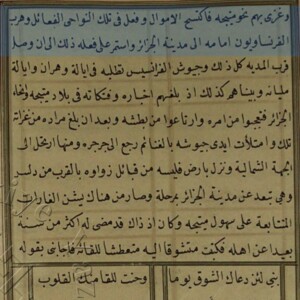 وغزى بهم نحو متيجه فاكتسح الاموال وفعل فى تلك النواحى الفعائل وهرب
الفرنساويون امامه الى مدينة الجزائر واستمر على فعله ذلك الى ان وصل
قرب المديه كل ذلك وجيوش الفرانسيس تقلبه فى ايالة وهران وايالة
مليانه وبينما هم كذلك اذ بلغهم اخباره وفتكاته فى بلاد متيجه وانحاء
الجزائر فتعجبوا من امره وارتاعوا من بطشه وبعد ان بلغ مراده من غزاته
تلك وامتلأت ايدى جيوشه بالغنائم رجع الى جرجره ومنها ارتحل الى
الجهة الشمالية ونزل بارض فليسه من قبائل زواوه بالقرب من دلس
وهى تبعد عن مدينة الجزائر بمرحلة وصار من هناك يشن الغارات
المتتابعة على سهول متيجه وكان اذ ذاك قد مضى له اكثر من سنة
بعيدا عن اهله فكنت متشوقا اليه متعطشا للقائه فاجابنى بقوله
بنى لئن دعاك الشوق يوما وحنت للقا منك القلوب